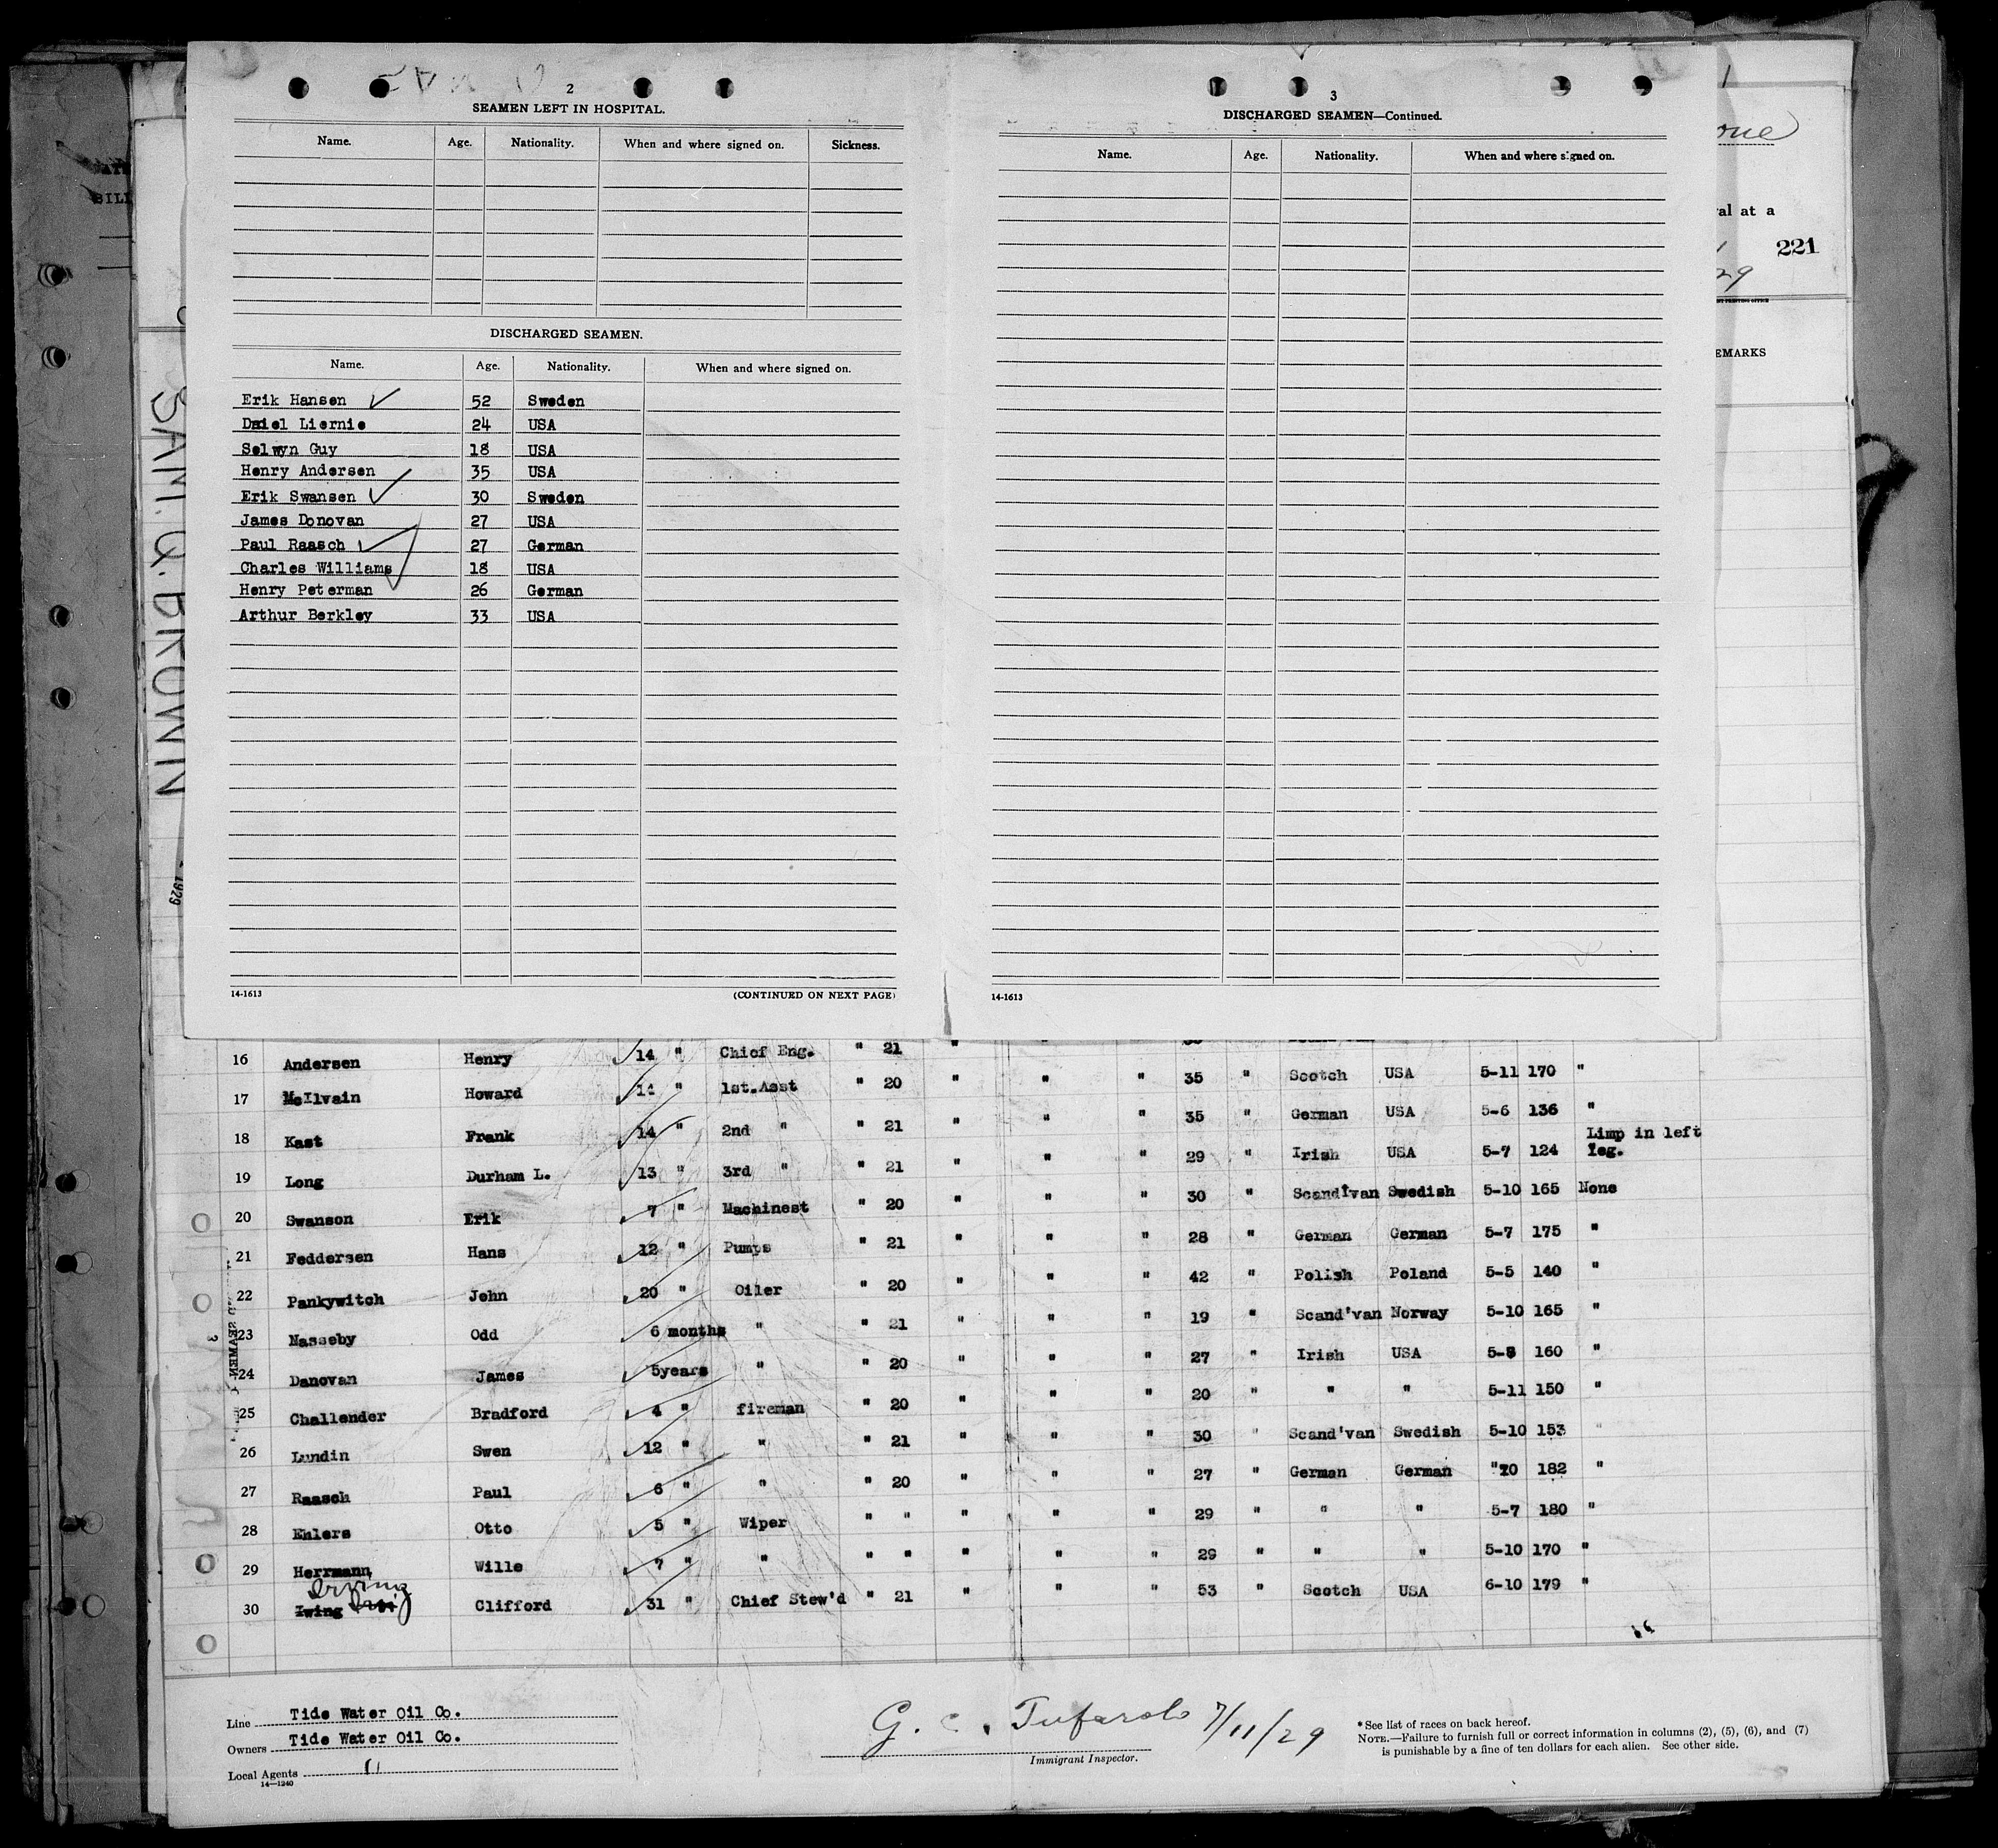 2
SEAMEN LEFT IN HOSPITAL.
Name. Age. Nationality. When and where signed on. Sickness.
DISCHARGED SEAMEN.
Name. Age. Nationality. When and where signed on.
Erik Hansen 52 Sweden
Daiel Liernie 24 USA
Selwyn Guy 18 USA
Henry Andersen 35 USA
Erik Swansen 30 Sweden
James Donovan 27 USA
Paul Raasch 27 German
Charles Williams 18 USA
Henry Peterman 26 German
Arthur Berkley 33 USA
14-1613 (CONTINUED ON NEXT PAGE)
3
DISCHARGED SEAMEN—Continued.
Name. Age. Nationality. When and where signed on.
14-1613
val at a
221
29
EMARKS
SAM. Q. BROWN
1929
16 Andersen Henry 14 " Chief Eng. " 21 " " " 35 " Scotch USA 5-11 170 "
17 McIlvain Howard 14 " 1st.Asst " 20 " " " 35 " German USA 5-6 136 "
18 Kast Frank 14 " 2nd " " 21 " " " 29 " Irish USA 5-7 124 Limp in left leg.
19 Long Durham L. 13 " 3rd " " 21 " " " 30 " Scandivan Swedish 5-10 165 None
20 Swanson Erik 7 " Machinest " 20 " " " 28 " German German 5-7 175 "
21 Feddersen Hans 12 " Pumps " 21 " " " 42 " Polish Poland 5-5 140 "
22 Pankywitch John 20 " Oiler " 20 " " " 19 " Scand'van Norway 5-10 165 "
23 Nasseby Odd 6 months " " 21 " " " 27 " Irish USA 5-8 160 "
24 Danovan James 5years " " 20 " " " 20 " " " 5-11 150 "
25 Challender Bradford 4 " fireman " 20 " " " 30 " Scand'van Swedish 5-10 153 "
26 Lundin Swen 12 " " " 21 " " " 27 " German German "10 182 "
27 Raasch Paul 6 " " " 20 " " " 29 " " " 5-7 180 "
28 Ehlers Otto 5 " Wiper " " " " " 29 " " " 5-10 170 "
29 Herrmann Wille 7 " " " " " " " 53 " Scotch USA 6-10 179 "
Irving
30 Iwing Clifford 31 " Chief Stew'd " 21 "
Line Tide Water Oil Co.
Owners Tide Water Oil Co.
Local Agents "
14—1240
G. C. Tufarolo 7/11/29
Immigrant Inspector.
* See list of races on back hereof.
NOTE.—Failure to furnish full or correct information in columns (2), (5), (6), and (7)
is punishable by a fine of ten dollars for each alien. See other side.